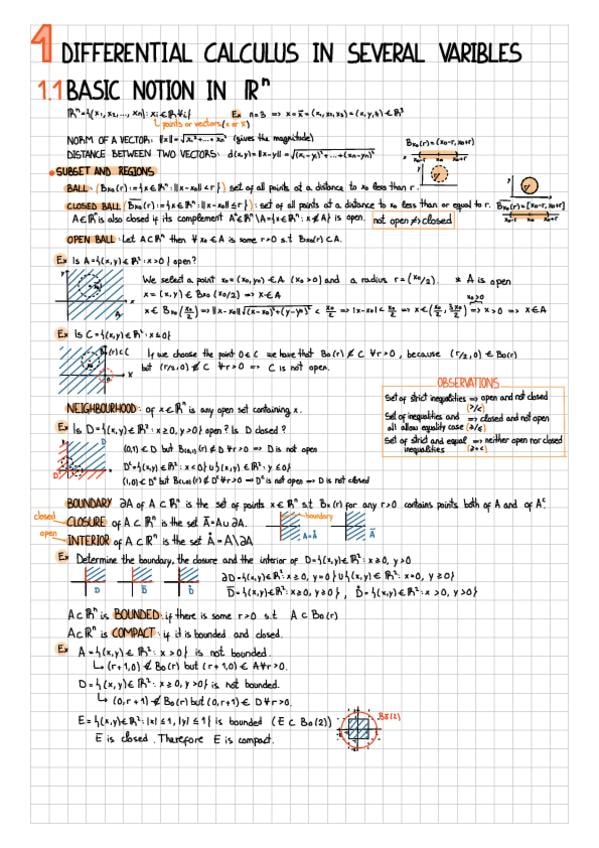 1 DIFFERENTIAL CALCULUS IN SEVERAL VARIBLES
1.1 BASIC NOTION IN ℝⁿ
ℝⁿ={(x₁, x₂, ..., xₙ): xᵢ∈ℝ ∀i} Ex n=3 => x = x̄ = (x₁, x₂, x₃) = (x, y, z) ∈ ℝ³
points or vectors (x or x̄)
NORM OF A VECTOR: ||x|| = √x₁²+...+xₙ² (gives the magnitude)
DISTANCE BETWEEN TWO VECTORS: d(x,y)=||x-y|| = √(x₁-y₁)²+...+(xₙ-yₙ)²
Bx₀(r)=(x₀-r, x₀+r)
x₀-r x₀ x₀+r
SUBSET AND REGIONS
BALL: Bx₀(r):={x∈ℝⁿ: ||x-x₀||<r} set of all points at a distance to x₀ less than r.
CLOSED BALL: B̄x₀(r):={x∈ℝⁿ: ||x-x₀||≤r}: set of all points at a distance to x₀ less than or equal to r.
B̄x₀(r)=[x₀-r, x₀+r]
x₀-r x₀ x₀+r
A∈ℝⁿ is also closed if its complement Aᶜ∈ℝⁿ\A={x∈ℝⁿ: x∉A} is open. not open ≠> closed
OPEN BALL: Let A⊂ℝⁿ then ∀x₀∈A is some r>0 s.t Bx₀(r)⊂A.
Ex Is A={(x,y)∈ℝ²: x>0} open?
y x₀ A x
We select a point x₀=(x₀,y₀)∈A (x₀>0) and a radius r=(x₀/2). * A is open
x=(x,y)∈Bx₀(x₀/2) => x∈A
x∈Bx₀(x₀/2) => ||x-x₀||√(x-x₀)²+(y-y₀)² < x₀/2 => |x-x₀|<x₀/2 => x∈(x₀/2, 3x₀/2) => x>0 => x∈A
x₀>0
Ex Is C={(x,y)∈ℝ²: x≤0}
If we choose the point 0∈C we have that B₀(r)⊄C ∀r>0, because (r/2,0)∈B₀(r)
but (r/2,0)∉C ∀r>0 => C is not open.
OBSERVATIONS
Set of strict inequalities => open and not closed
(>/<)
Set of inequalities and => closed and not open
all allow equality case (≥/≤)
Set of strict and equal => neither open nor closed
inequalities (≥+<)
NEIGHBOURHOOD: of x∈ℝⁿ is any open set containing x.
Ex Is D={(x,y)∈ℝ²: x≥0, y>0} open? Is D closed?
(0,1)∈D but B(0,1)(r)⊄D ∀r>0 => D is not open
Dᶜ={(x,y)∈ℝ²: x<0}∪{(x,y)∈ℝ²: y≤0}
(1,0)∈Dᶜ but B(1,0)(r)⊄Dᶜ ∀r>0 => Dᶜ is not open => D is not closed
BOUNDARY ∂A of A⊂ℝⁿ is the set of points x∈ℝⁿ s.t Bx(r) for any r>0 contains points both of A and of Aᶜ.
closed CLOSURE of A⊂ℝⁿ is the set Ā=A∪∂A. boundary
open INTERIOR of A⊂ℝⁿ is the set Å=A\∂A A=Å Ā
Ex Determine the boundary, the closure and the interior of D={(x,y)∈ℝ²: x≥0, y>0
D D̄ D̊
∂D={(x,y)∈ℝ²: x≥0, y=0}∪{(x,y)∈ℝ²: x=0, y≥0}
D̄={(x,y)∈ℝ²: x≥0, y≥0}, D̊={(x,y)∈ℝ²: x>0, y>0}
A⊂ℝⁿ is BOUNDED: if there is some r>0 s.t A⊂B₀(r)
A⊂ℝⁿ is COMPACT: if it is bounded and closed.
Ex A={(x,y)∈ℝ²: x>0} is not bounded.
↳ (r+1,0)∉B₀(r) but (r+1,0)∈A ∀r>0.
D={(x,y)∈ℝ²: x≥0, y>0} is not bounded.
↳ (0,r+1)∉B₀(r) but (0,r+1)∈D ∀r>0.
E={(x,y)∈ℝ²: |x|≤1, |y|≤1} is bounded (E⊂B₀(2))
E is closed. Therefore E is compact.